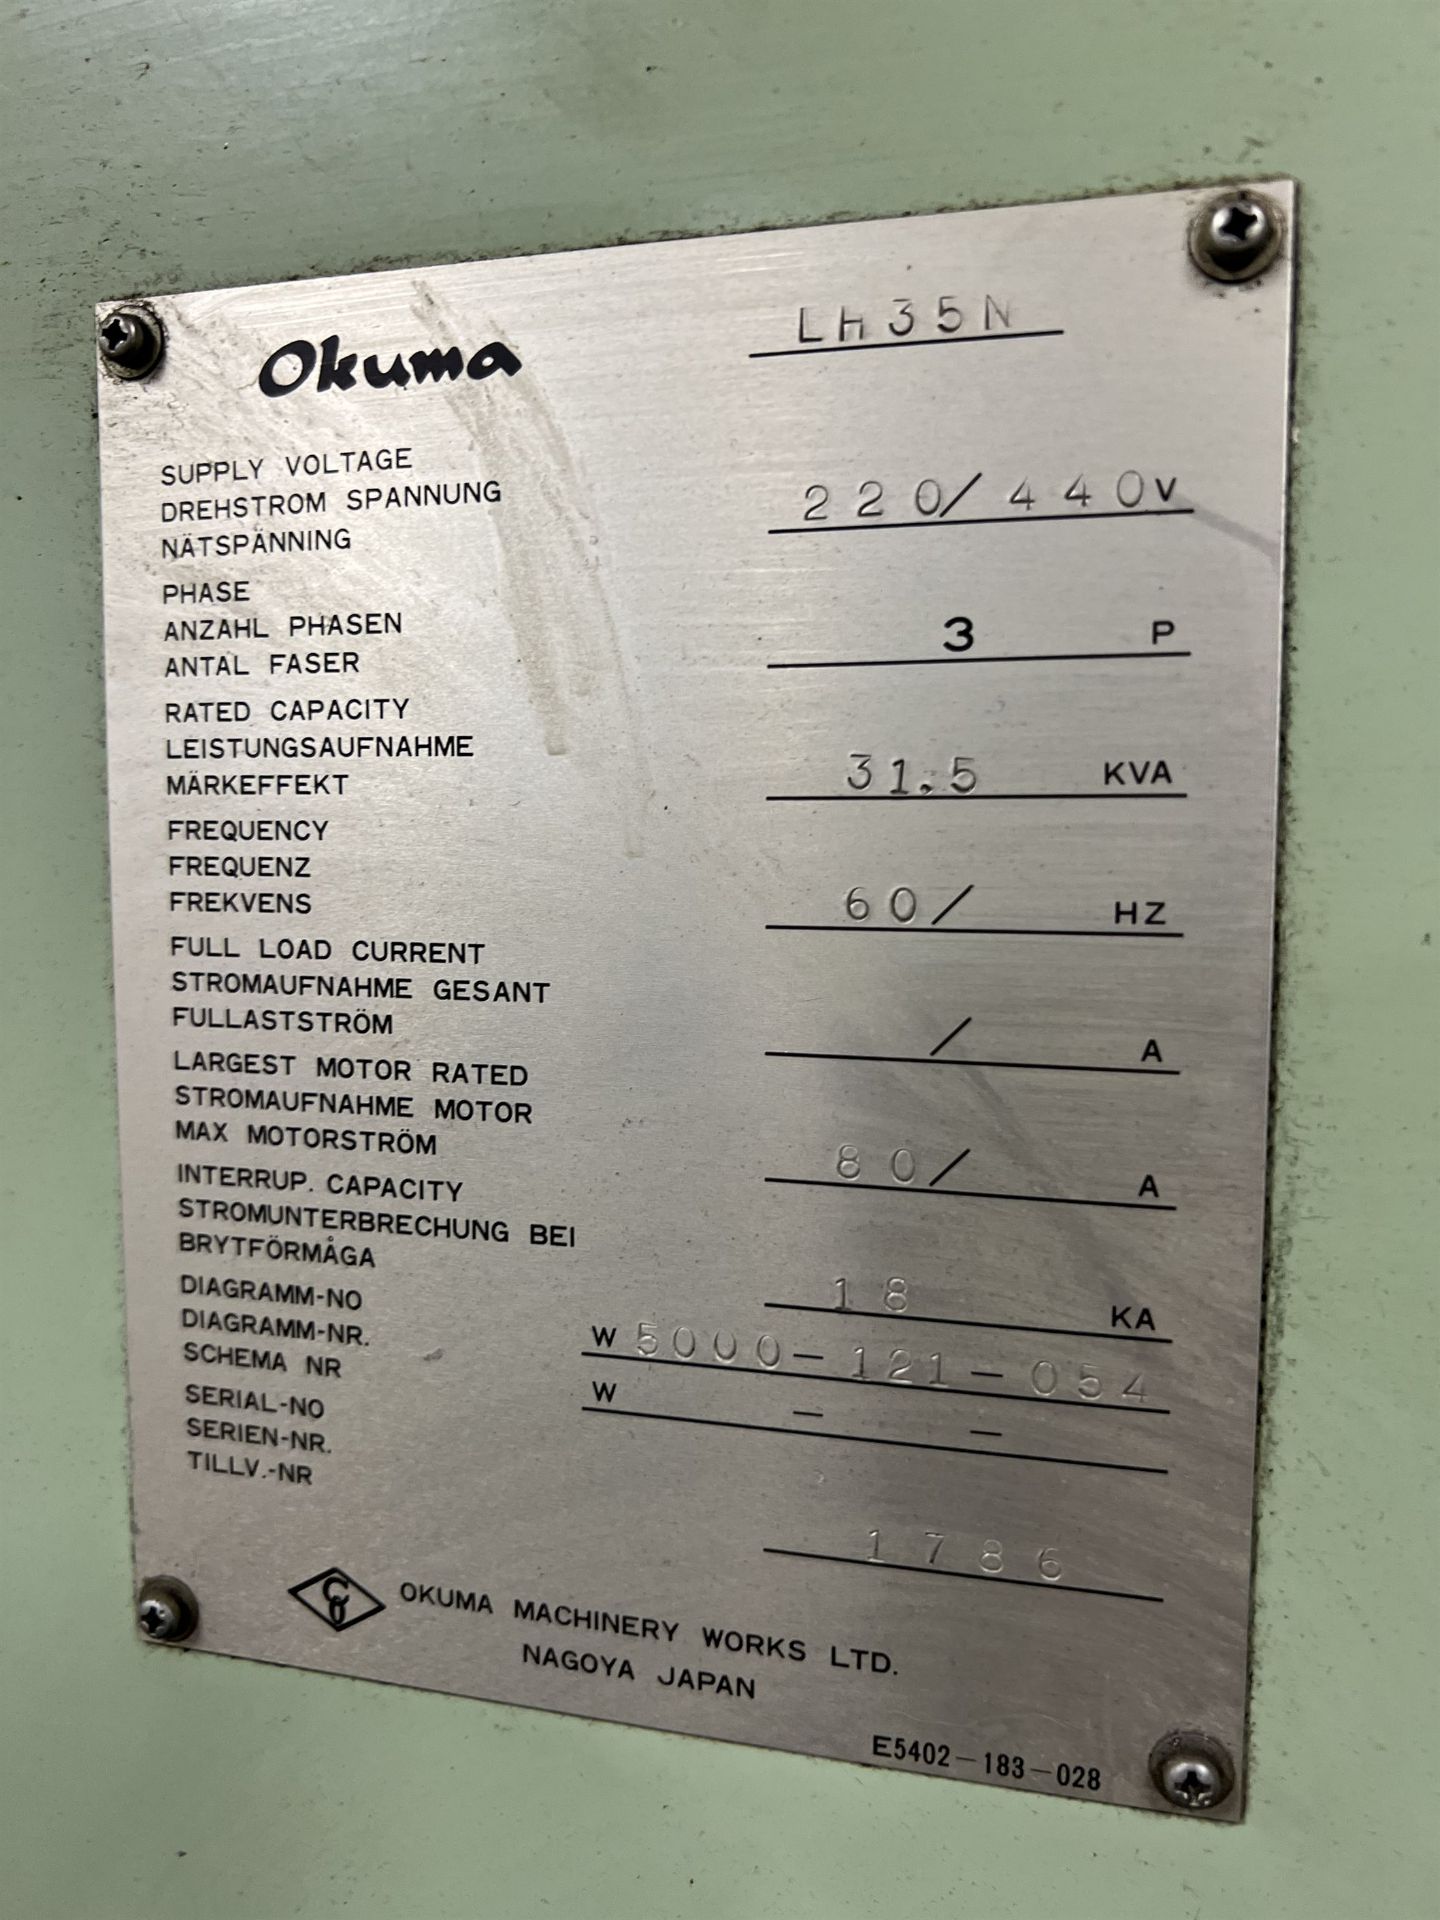 Okuma LH35N
SUPPLY VOLTAGE
DREHSTROM SPANNUNG
NÄTSPÄNNING
220/440V
PHASE
ANZAHL PHASEN
ANTAL FASER
3 P
RATED CAPACITY
LEISTUNGSAUFNAHME
MÄRKEFFEKT
31.5 KVA
FREQUENCY
FREQUENZ
FREKVENS
60/ HZ
FULL LOAD CURRENT
STROMAUFNAHME GESANT
FULLASTSTRÖM
/ A
LARGEST MOTOR RATED
STROMAUFNAHME MOTOR
MAX MOTORSTRÖM
80/ A
INTERRUP. CAPACITY
STROMUNTERBRECHUNG BEI
BRYTFÖRMÅGA
18 KA
DIAGRAMM-NO
DIAGRAMM-NR.
SCHEMA NR
W 5000-121-054
W - -
SERIAL-NO
SERIEN-NR.
TILLV.-NR
1786
CO OKUMA MACHINERY WORKS LTD.
NAGOYA JAPAN
E5402-183-028